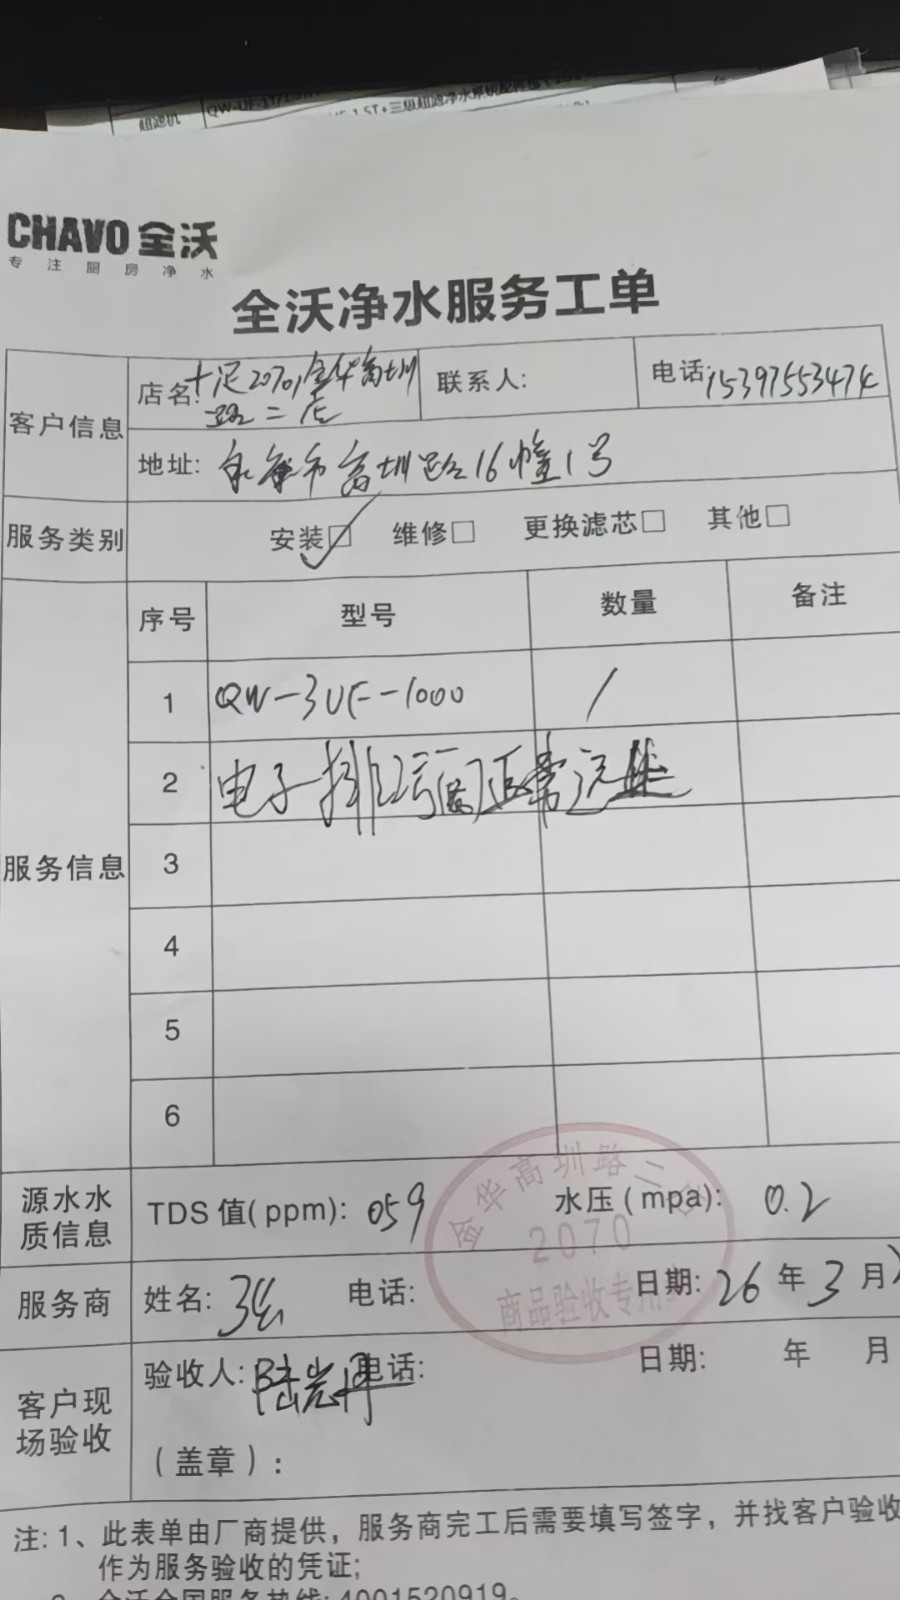 超滤机
QW-UF-1T/1.5T+三级超滤净水系统配件包
CHAVO 全沃
专注厨房净水
全沃净水服务工单
客户信息
店名:十足2070,金华高圳
路二店
联系人:
电话:15397553474
地址:永康市高圳路16幢1号
服务类别
安装☑ 维修□ 更换滤芯□ 其他□
服务信息
序号 型号 数量 备注
1 QW-3UF-1000 1
2 电子排污阀正常运
3
4
5
6
源水水
质信息
TDS 值(ppm): 059 水压(mpa): 0.2
金华高圳路二店
2070
商品验收专用
服务商
姓名: 电话: 日期: 26 年 3 月
客户现
场验收
验收人: 陆岩 电话: 日期: 年 月
(盖章):
注: 1、此表单由厂商提供，服务商完工后需要填写签字，并找客户验收
作为服务验收的凭证;
2、全沃全国服务热线: 4001520919。